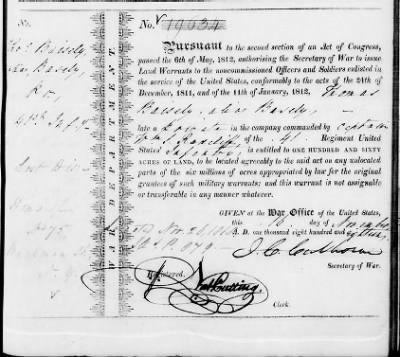 No. 19634
Pursuant to the second section of an Act of Congress,
passed the 6th of May, 1812, authorising the Secretary of War to issue
Land Warrants to the noncommissioned Officers and Soldiers enlisted in
the service of the United States, conformably to the acts of the 24th
of December, 1811, and of the 11th of January, 1812, Thomas
Baisely, alias Basely,
late a Private in the company commanded by Captain
of the 41 Regiment United
States' Infantry, is entitled to ONE HUNDRED AND SIXTY
ACRES OF LAND, to be located agreeably to the said act on any unlocated
parts of the six millions of acres appropriated by law for the original
grantees of such military warrants; and this warrant is not assignable
or transferable in any manner whatever.
GIVEN at the War Office of the United States,
this day of
A. D. one thousand eight hundred and
J. C. Calhoun
Secretary of War.
Registered,
Nat Cutting,
Clerk.
WAR DEPARTMENT.
No.
Basely